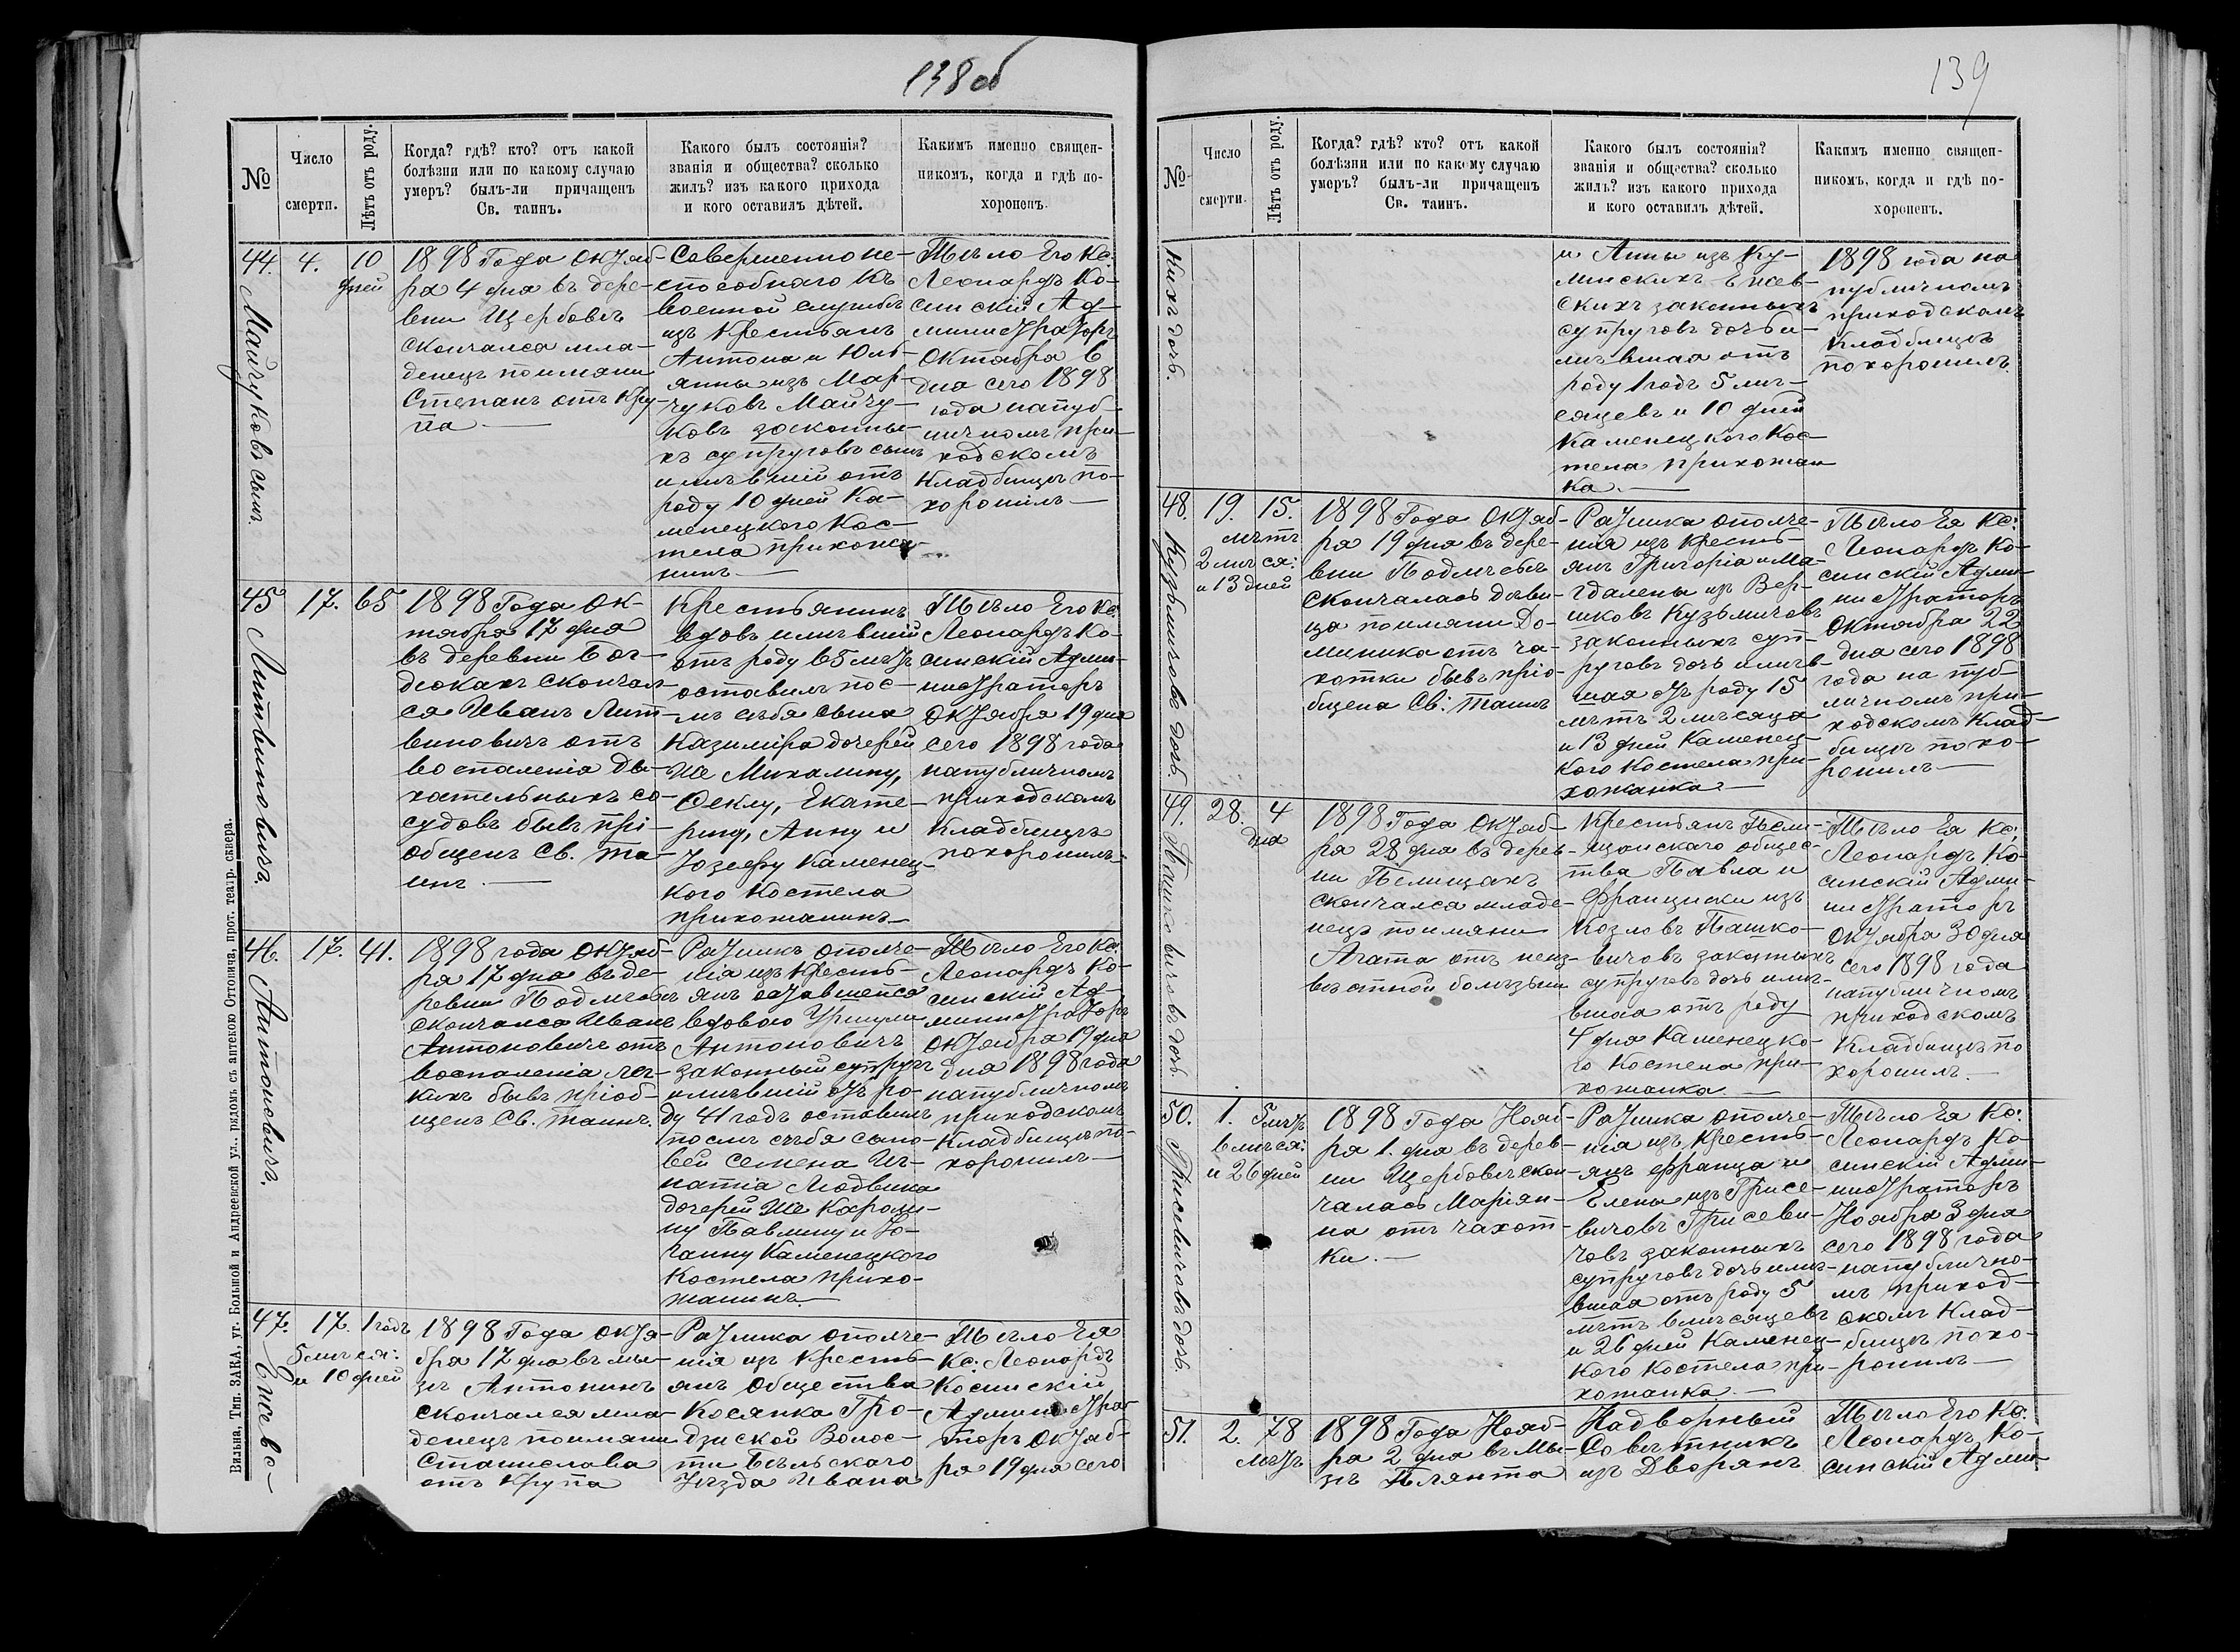 138 об
№
Число
смерти.
Лѣтъ отъ роду.
Когда? гдѣ? кто? отъ какой
болѣзни или по какому случаю
умеръ? былъ-ли причащенъ
Св. таинъ.
Какого былъ состоянія?
званія и общества? сколько
жилъ? изъ какого прихода
и кого оставилъ дѣтей.
Какимъ именно священ-
никомъ, когда и гдѣ по-
хороненъ.
44.
Майчуковъ сынъ.
4.
10
дней
1898 Года Октяб-
ря 4 дня въ дере-
вни Щербовѣ
скончался мла-
денецъ поимяни
Степанъ отъ кру-
па
Совершенно не-
способнаго къ
военной службѣ
изъ крестьянъ
Антона и Юль-
янны изъ Мар-
чуковъ Майчу-
ковъ законны-
хъ супруговъ сынъ
имѣвшій отъ
роду 10 дней Ка-
менецкого Кос-
тела прихожа-
нинъ
Тѣло Его Кс:
Леонардъ Ко-
синскій Ад-
министраторъ
Октября 6
дня сего 1898
года напуб-
личномъ при-
ходскомъ
кладбищѣ по-
хоронилъ
45
Литвиновичъ.
17.
65
1898 Года Ок-
тября 17 дня
въ деревни Бог-
дюкахъ скончал-
ся Иванъ Лит-
виновичъ отъ
воспаленія ды-
хательныхъ со-
судовъ бывъ прі-
общенъ Св. та-
инъ.
Крестьянинъ
вдовъ имѣвшій
отъ роду 65 лѣтъ
оставилъ пос-
лѣ себя сына
Казиміра дочерей
же Михалину,
Феклу, Екате-
рину, Анну и
Іозефу Каменец-
кого Костела
прихожанинъ
Тѣло Его Кс:
Леонардъ Ко-
синскій Адми-
нистраторъ
Октября 19 дня
сего 1898 года
напубличномъ
приходскомъ
кладбищѣ
похоронилъ
46.
Антоновичъ.
17.
41.
1898 года Октяб-
ря 17 дня въ де-
ревни Подлѣсьѣ
скончался Иванъ
Антоновичъ отъ
воспаленія лег-
кихъ бывъ пріоб-
щенъ Св. таинъ.
Ратникъ ополче-
нія изъ кресть-
янъ оставшейся
вдовою Уршули
Антоновичъ
законный супругъ
имѣвшій отъ ро-
ду 41 годъ оставилъ
послѣ себя сыно-
вей Семена Иг-
натія Людвика
дочерей же Кароли-
ну Павлину и Іо-
ганну Каменецкого
Костела прихо-
жанинъ
Тѣло Его Кс:
Леонардъ Ко-
синскій Ад-
министраторъ
Октября 19 дня
дня 1898 года
напубличномъ
приходскомъ
кладбищѣ по-
хоронилъ
47.
Ежевс-
17.
1 годъ
5 мѣся:
и 10 дней
1898 Года Октя-
бря 17 дня въ мы-
зѣ Антонинъ
скончался мла-
денецъ поимяни
Станислава
отъ крупа
Ратника ополче-
нія изъ кресть-
янъ общества
Косянка Гро-
дзиской Волос-
ти Бѣльскаго
Уѣзда Ивана
Тѣло Ея
Кс: Леонардъ
Косинскій
Администра-
торъ Октяб-
ря 19 дня сего
Вильна, Тип. ЗАКА, уг. Большой и Андреевской ул., рядомъ съ аптекою Оттовича, прот. театр. сквера.
139
№
Число
смерти.
Лѣтъ отъ роду.
Когда? гдѣ? кто? отъ какой
болѣзни или по какому случаю
умеръ? былъ-ли причащенъ
Св. таинъ.
Какого былъ состоянія?
званія и общества? сколько
жилъ? изъ какого прихода
и кого оставилъ дѣтей.
Какимъ именно священ-
никомъ, когда и гдѣ по-
хороненъ.
кихъ дочь.
и Анны изъ Ку-
минскихъ Ежев-
скихъ законныхъ
супруговъ дочь и-
мѣвшая отъ
роду 1 годъ 5 мѣ-
сяцевъ и 10 дней
Каменецкого Кос-
тела прихожан
ка.
1898 года на
публичномъ
приходскомъ
кладбищѣ
похоронилъ.
48.
Кузьмичовъ дочь.
19.
15.
лѣтъ
2 мѣся:
и 13 дней
1898 Года Октяб-
ря 19 дня въ дере-
вни Подлѣсьѣ
скончалась дѣви-
ца поимяни До-
миника отъ ча-
хотки бывъ пріо-
бщена Св: таинъ
Ратника ополче-
нія изъ кресть-
янъ Григорія и Ма-
гдалены изъ Вер-
шковъ Кузьмичовъ
законныхъ суп-
руговъ дочь имѣв-
шая отъ роду 15
лѣтъ 2 мѣсяца
и 13 дней Каменец-
кого Костела при-
хожанка
Тѣло Ея Кс:
Леонардъ Ко-
синскій Адми-
нистраторъ
Октября 22
дня сего 1898
года на пуб-
личномъ при-
ходскомъ клад-
бищѣ похо-
ронилъ
49.
Пашковичовъ дочь
28.
4
дня
1898 Года Октяб-
ря 28 дня въ дерев-
ни Пелищахъ
скончалса младе-
нецъ поимяни
Агата отъ неиз-
вѣстной болѣзни
Крестьянъ Пели-
щанскаго общес-
тва Павла и
Франциски изъ
Козловъ Пашко-
вичовъ законныхъ
супруговъ дочь имѣ-
вшая отъ роду
4 дня Каменецко-
го Костела при-
хожанка
Тѣло Ея Кс:
Леонардъ Ко-
синскій Адми-
нистраторъ
Октября 30 дня
сего 1898 года
напубличномъ
приходскомъ
кладбищѣ по
хоронилъ.
50.
Грисевичовъ дочь.
1.
5 лѣтъ
6 мѣся:
и 26 дней
1898 Года Нояб-
ря 1. дня въ дерев-
ни Щербовѣ скон-
чалась Маріян-
на отъ чахот-
ки.
Ратника ополче-
нія изъ кресть-
янъ Франца и
Елены изъ Грисе-
вичовъ Грисеви-
човъ законныхъ
супруговъ дочь имѣ-
вшая отъ роду 5
лѣтъ 6 мѣсяцевъ
и 26 дней Каменец-
кого Костела при-
хожанка
Тѣло Ея Кс:
Леонардъ Ко-
синскій Адми-
нистраторъ
Ноября 3 дня
сего 1898 года
напублично-
мъ приход-
скомъ клад-
бищѣ похо-
ронилъ
51.
2.
78
лѣтъ
1898 Года Нояб-
ря 2 дня въ Мы-
зѣ Плянта
Надворный
Совѣтникъ
изъ Дворянъ
Тѣло Его Кс:
Леонардъ Ко-
синскій Адми-